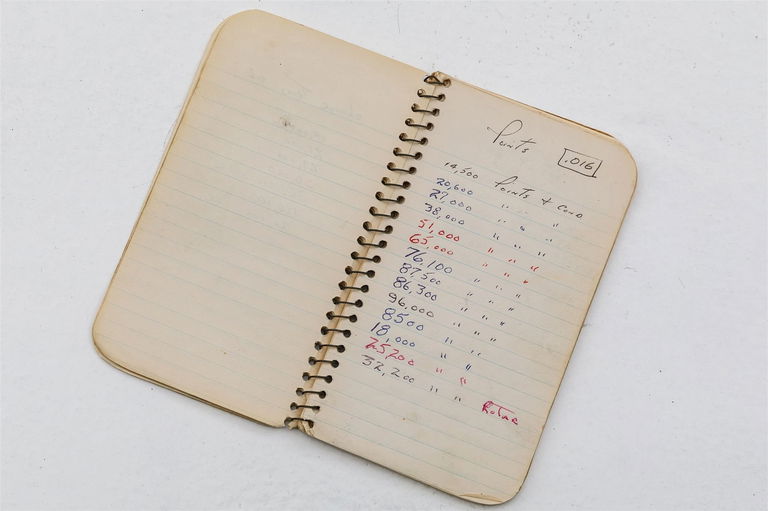 Points .016
14,500 Points & Cond
20,600 " " "
27,000 " " "
38,000 " " "
51,000 " " "
65,000 " " "
76,100 " " "
87,500 " " "
86,300 " " "
96,000 " " "
8500 " "
18,000 " "
25200 " "
32,200 " " Rotor